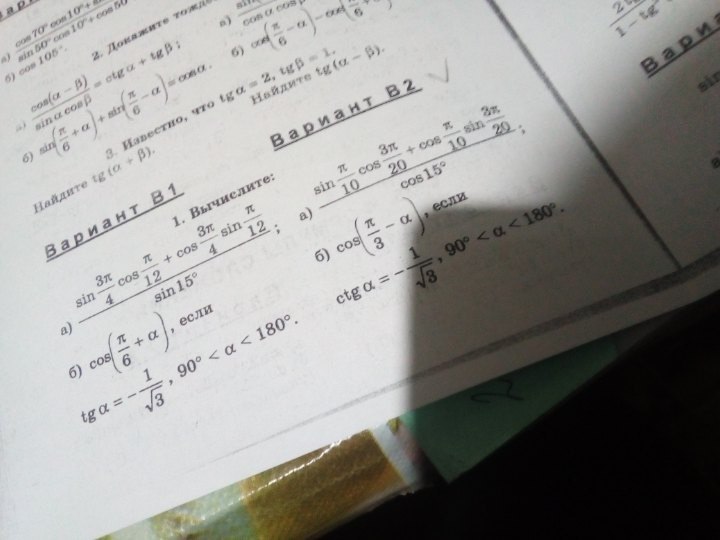 cos70° cos10° + sin
sin50° cos10° + cos50
б) cos 105°.
2. Докажите тожде
а) cos(α − β) / sin α cos β = ctg α + tg β ;
б) sin(π/6 + α) + sin(π/6 − α) = cos α.
3. Известно, что tg α = 2, tg β = 1.
Найдите tg (α + β).
Найдите tg (α − β).
Вариант В1
1. Вычислите:
а) (sin 3π/4 cos π/12 + cos 3π/4 sin π/12) / sin 15° ;
б) cos(π/6 + α), если
tg α = −1/√3, 90° < α < 180°.
Вариант В2
а) (sin π/10 cos 3π/20 + cos π/10 sin 3π/20) / cos 15° ;
б) cos(π/3 − α), если
ctg α = −1/√3, 90° < α < 180°.